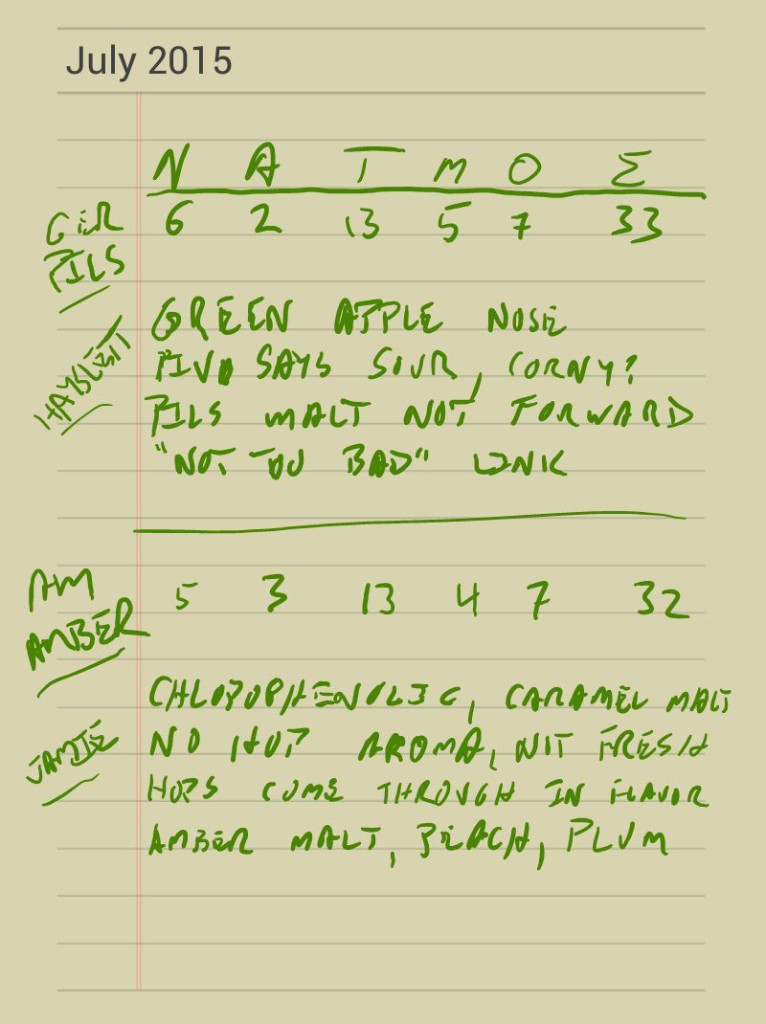 July 2015
N A T M O Σ
GER PILS 6 2 13 5 7 33
HAYBLETT
GREEN APPLE NOSE
PIVO SAYS SOUR, CORNY?
PILS MALT NOT FORWARD
"NOT TOO BAD" WINK
AM AMBER 5 3 13 4 7 32
JAMIE
CHLOROPHENOLIC, CARAMEL MALT
NO HOP AROMA, NOT FRESH
HOPS COME THROUGH IN FLAVOR
AMBER MALT, PEACH, PLUM